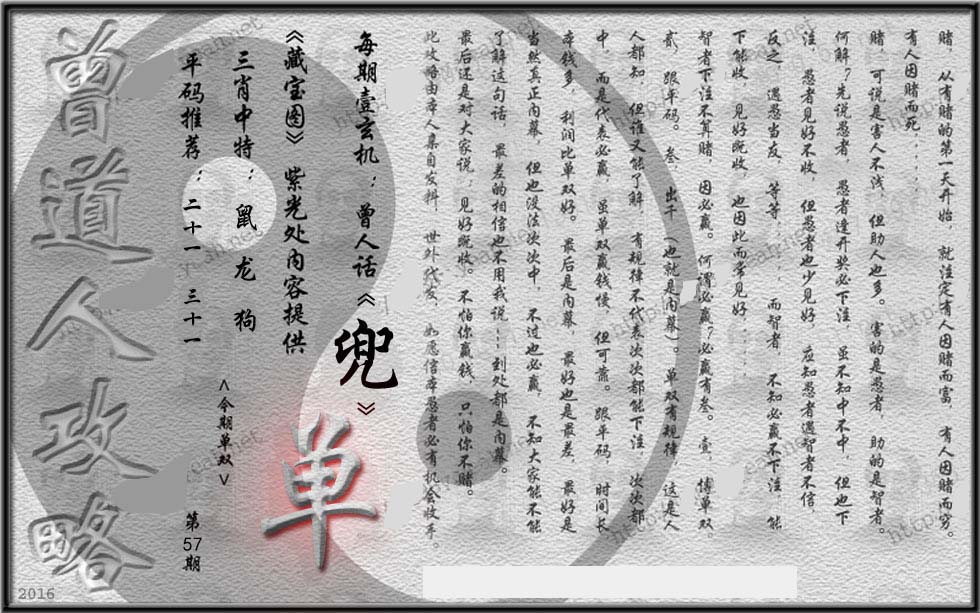 赌，从有赌的第一天开始，就注定有人因赌而富，有人因赌而穷。
有人因赌而死......
赌，可说是害人不浅，但助人也多。害的是愚者，助的是智者。
何解？先说愚者，愚者逢开奖必下注，虽不知中不中，但也下
注，愚者见好不收，但愚者也少见好，应知愚者遇智者不信，
反之，遇愚当友，等等......而智者，不知必赢不下注，能
下能收，见好既收，也因此而常见好......
智者下注不算赌，因必赢。何谓必赢？必赢有叁。壹，博单双，
贰，跟平码。叁，出千（也就是内幕）。单双有规律，这是人
人都知，但谁又能了解，有规律不代表次次都能下注，次次都
中，而是代表必赢，虽单双赢钱慢，但可靠。跟平码，时间长，
本钱多，利润比单双好。最后是内幕，最好也是最差，最好是
当然真正内幕，但也没法次次中，不过也必赢，不知大家能不能
了解这句话，最差的相信也不用我说...到处都是内幕。
最后还是对大家说：见好既收。不怕你赢钱，只怕你不赌。
此攻略由本人亲自发料，世外代友，如愿信本愚者必有机会收手。
每期壹玄机：曾人话《兜》
《藏宝图》紫光处内容提供
三肖中特：鼠 龙 狗
平码推荐：二十一 三十一
<今期单双>
单
第57期
曾道人攻略
2016